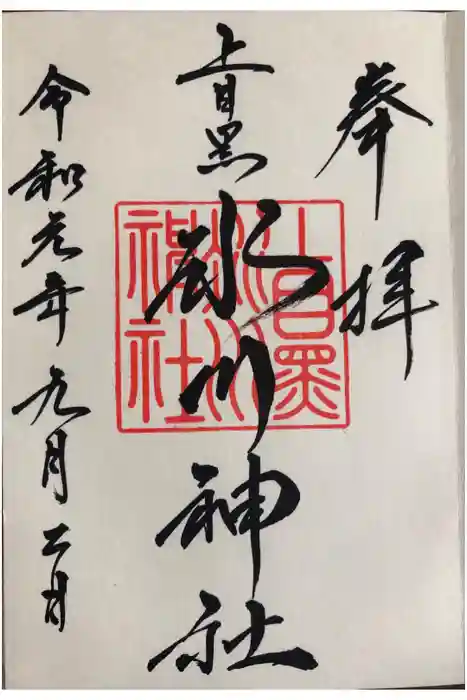 奉拝
上目黒
氷川神社
令和元年九月二日
上目黒
氷川
神社